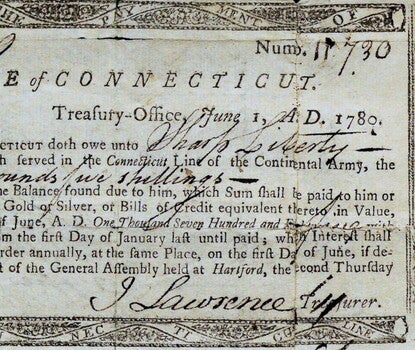 THE PAY MENT OF
Num. 11730
E of CONNECTICUT.
Treasury-Office, June 1, A.D. 1780.
ECTICUT doth owe unto Sharp Liberty
h served in the Connecticut Line of the Continental Army, the
ounds five shillings
he Balance found due to him, which Sum ſhall be paid to him or
Gold or Silver, or Bills of Credit equivalent thereto in Value,
of June, A. D. One Thouſand Seven Hundred and with
om the firſt Day of January laſt until paid; which Intereſt ſhall
order annually, at the ſame Place, on the firſt Day of June, if de-
t of the General Aſſembly held at Hartford, the ſecond Thurſday
J Lawrence Treaſurer.
NEC TI C LINE